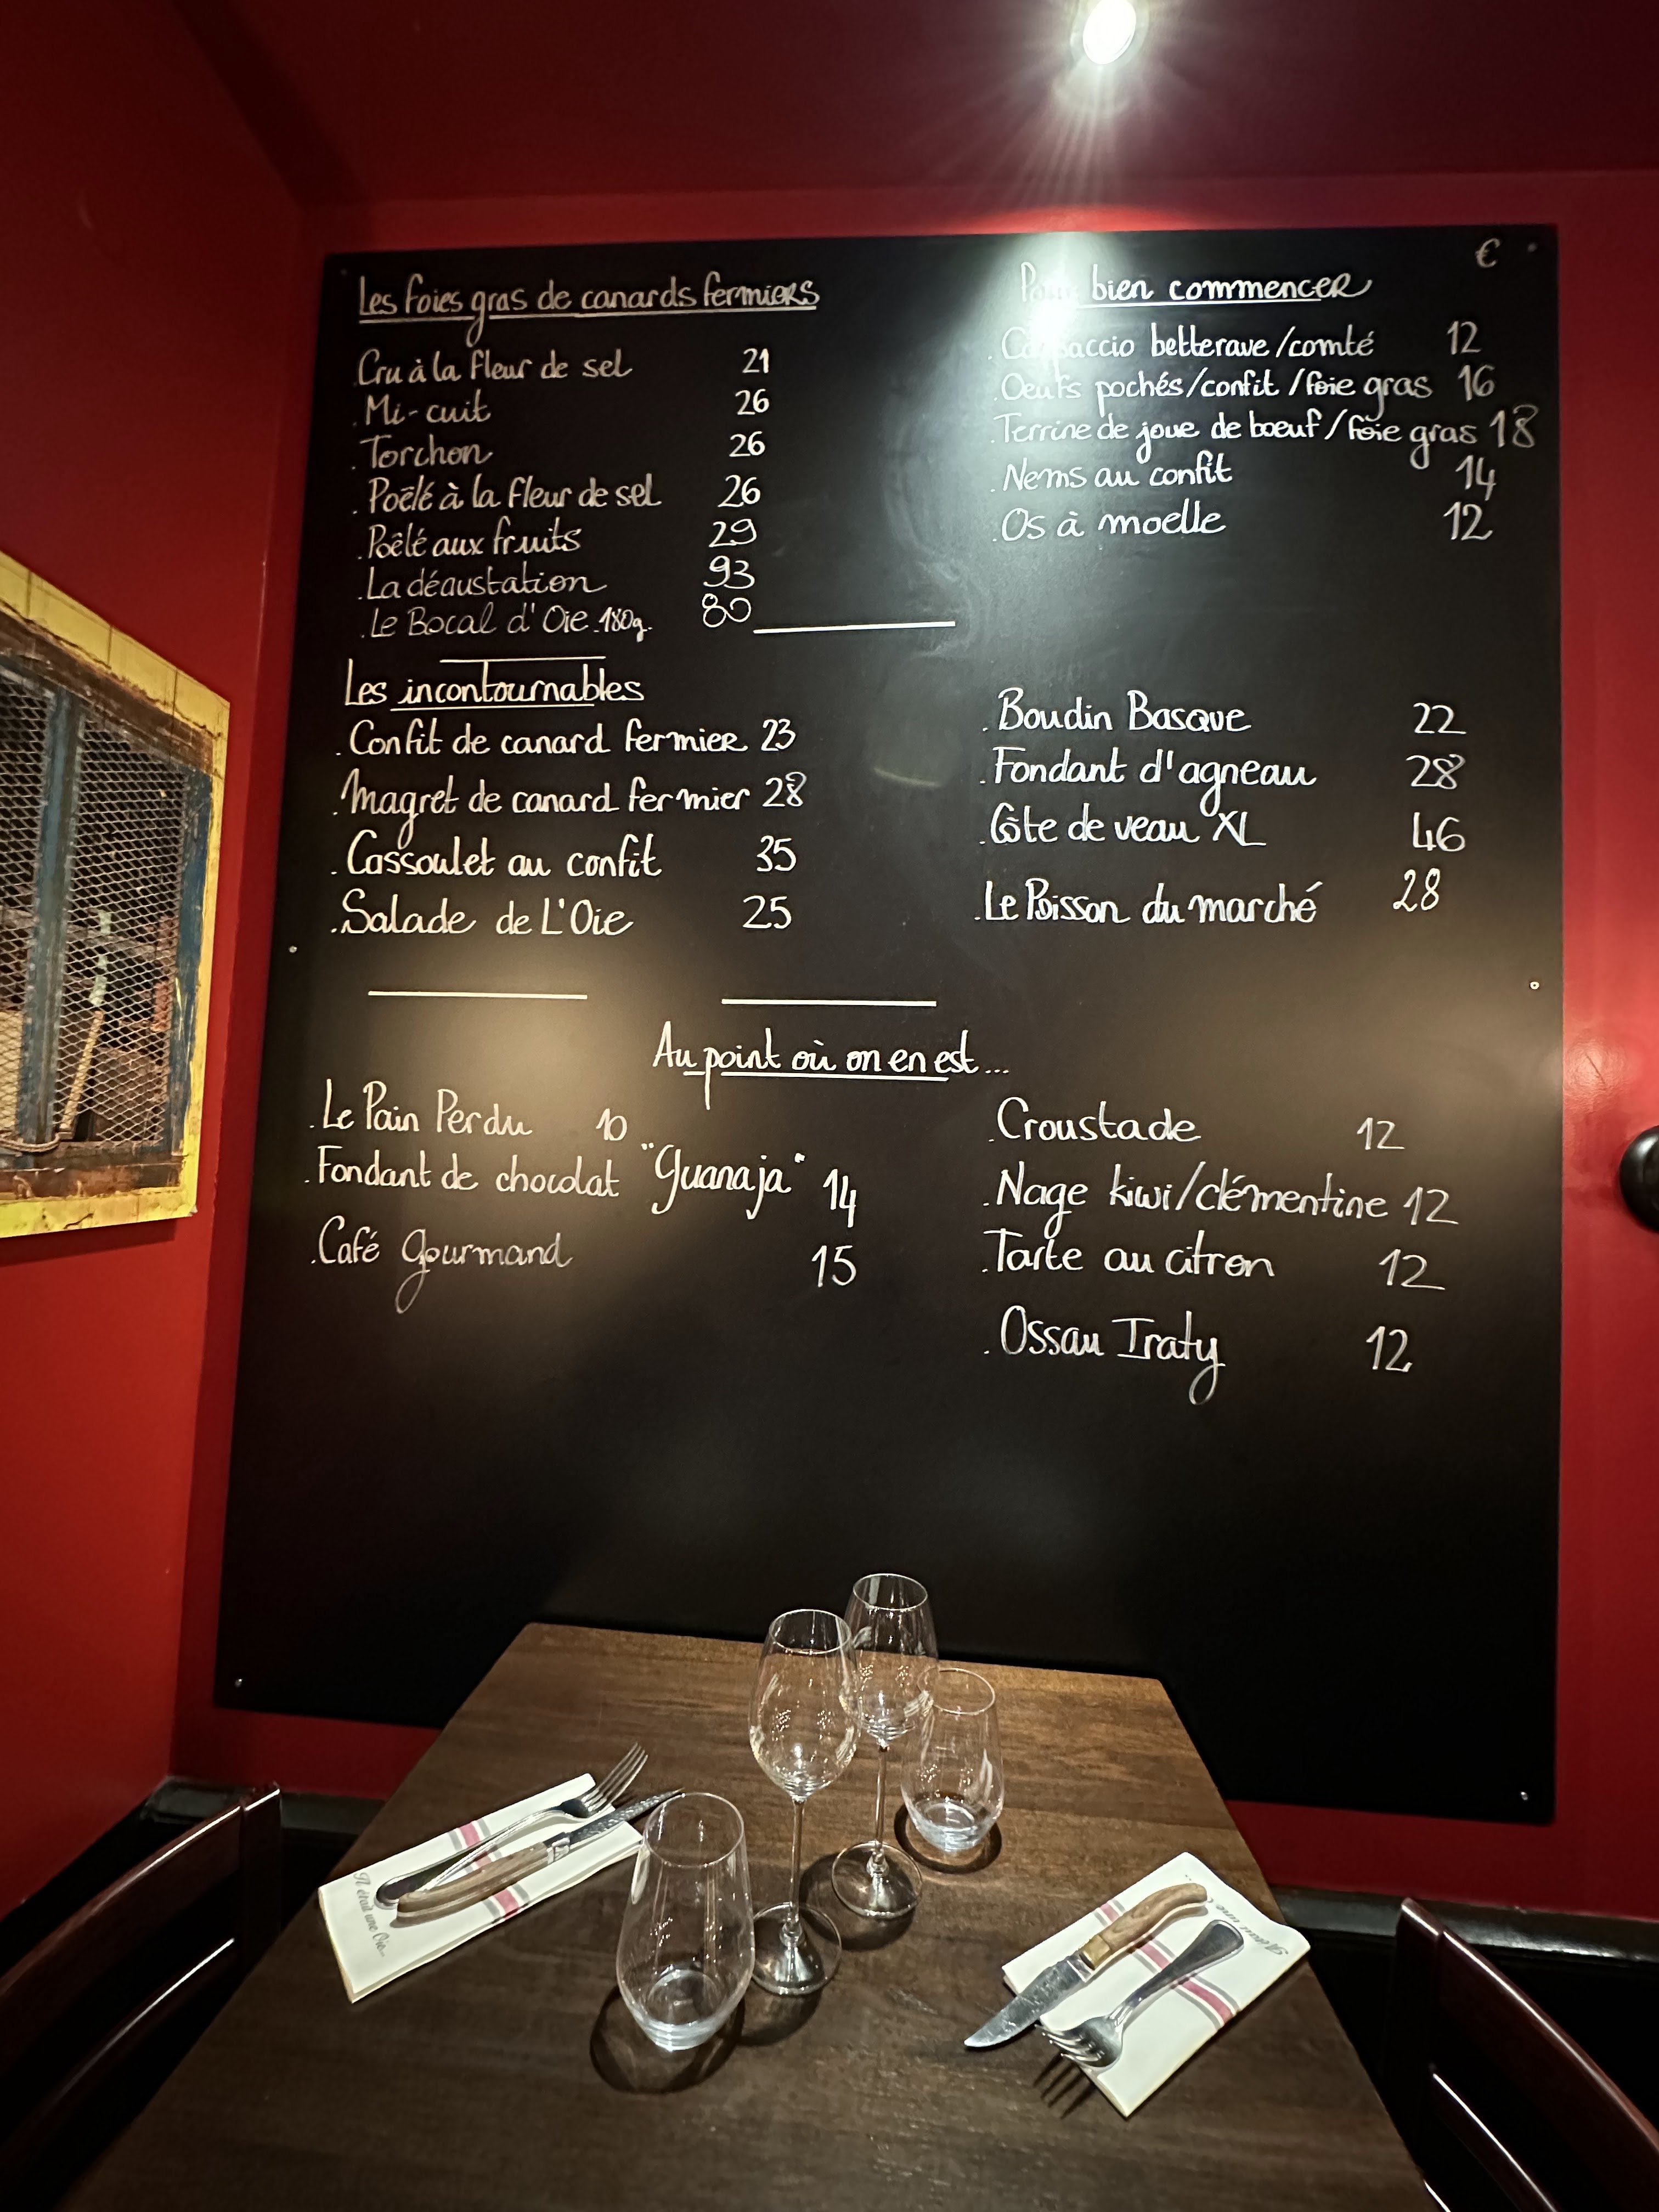 €
Les foies gras de canards fermiers
Cru à la fleur de sel 21
. Mi-cuit 26
. Torchon 26
. Poêlé à la fleur de sel 26
. Poêlé aux fruits 29
. La dégustation 93
. Le Bocal d'Oie 180g. 80
Pour bien commencer
. Carpaccio betterave/comté 12
. Oeufs pochés/confit/foie gras 16
. Terrine de joue de boeuf/foie gras 18
. Nems au confit 14
. Os à moelle 12
Les incontournables
. Confit de canard fermier 23
. Magret de canard fermier 28
. Cassoulet au confit 35
. Salade de L'Oie 25
. Boudin Basque 22
. Fondant d'agneau 28
. Côte de veau XL 46
. Le Poisson du marché 28
Au point où on en est...
. Le Pain Perdu 10
. Fondant de chocolat "Guanaja" 14
. Café Gourmand 15
. Croustade 12
. Nage kiwi/clémentine 12
. Tarte au citron 12
. Ossau Iraty 12
Il était une Oie...